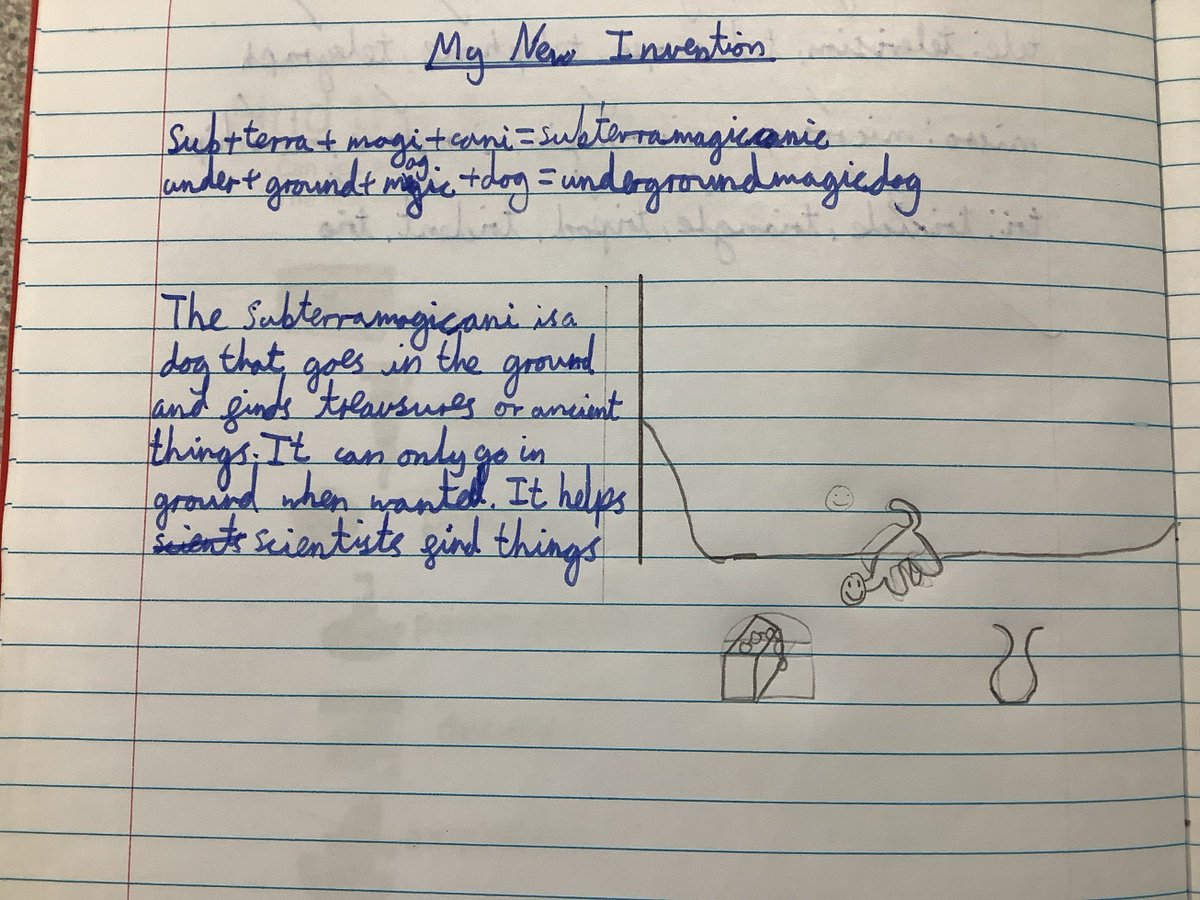 My New Invention
Sub+terra+magi+cani=subterramagiccanic
under+ground+magic+dog=undergroundmagicdog
The Subterramagicani is a
dog that goes in the ground
and finds treausures or ancient
things. It can only go in
ground when wanted. It helps
scients scientists find things